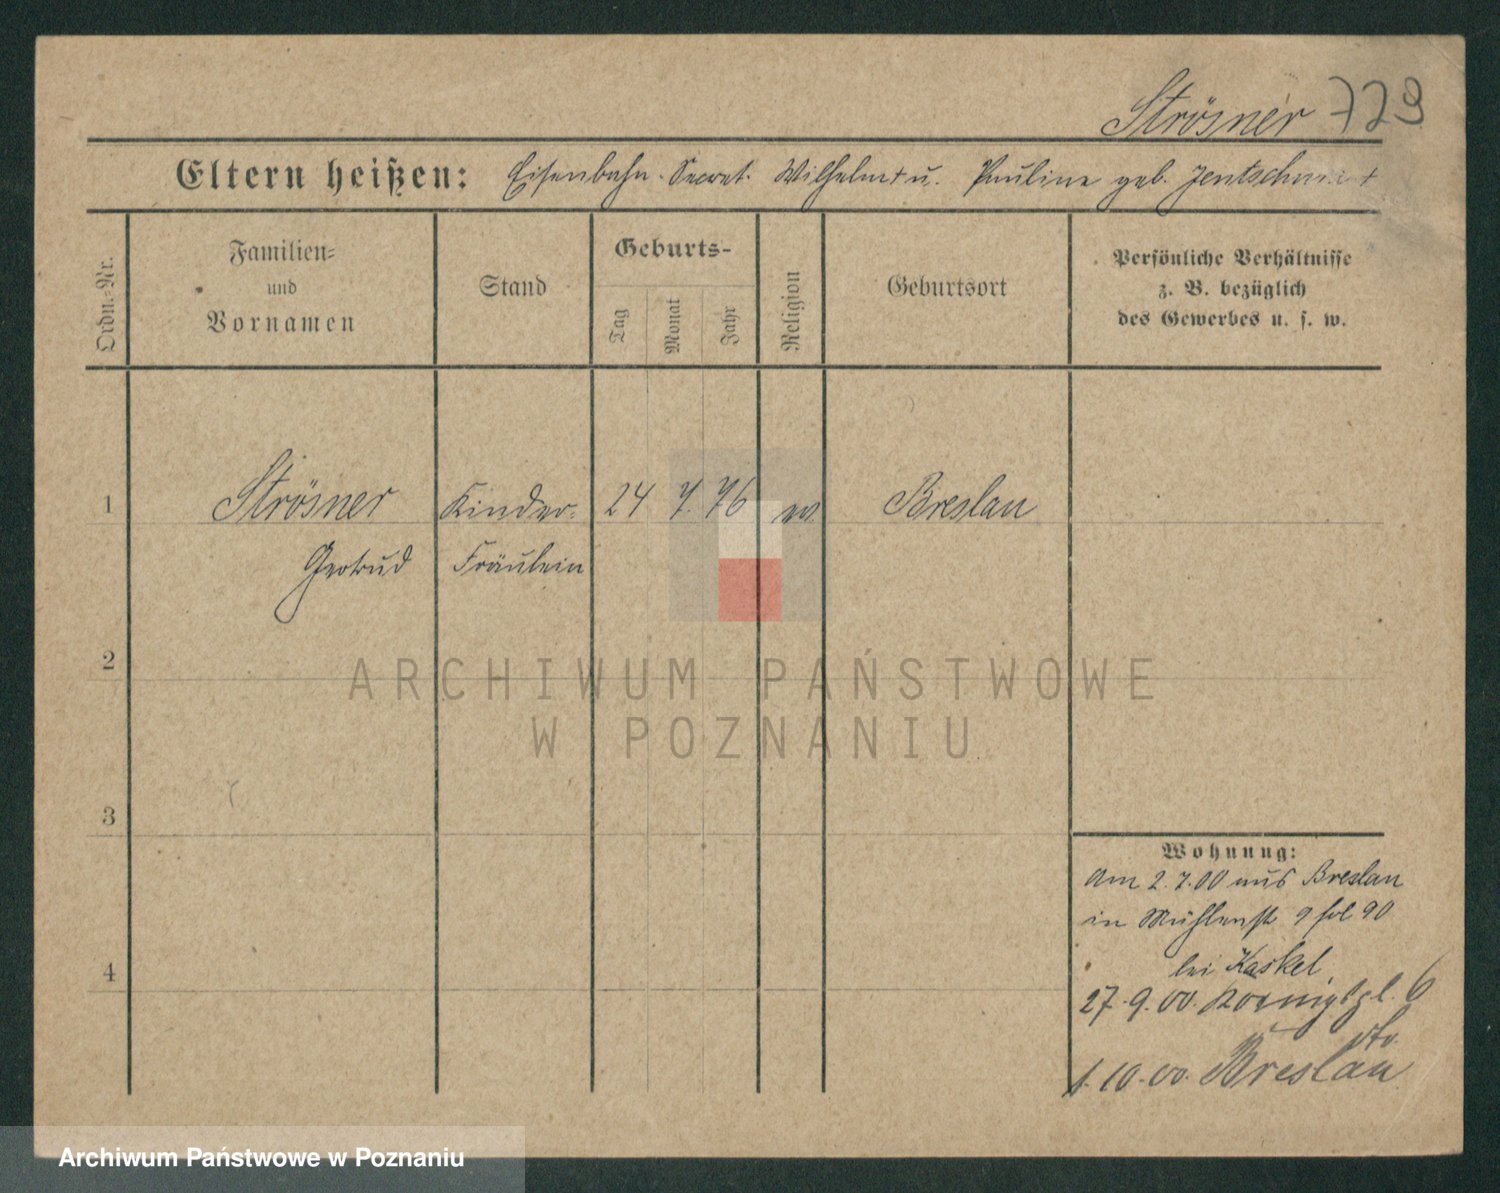 Strösner 729
Eltern heißen: Eisenbahn-Secret. Wilhelm + u. Pauline geb.
Ordn.-Nr.
Familien- und Vornamen
Stand
Geburts-
Tag
Monat
Jahr
Religion
Geburtsort
Persönliche Verhältnisse
z. B. bezüglich
des Gewerbes u. s. w.
1 Strösner Kinder- 24 7. 76 ev. Breslau
Gertrud Fräulein
2
ARCHIWUM PAŃSTWOWE
W POZNANIU
3
Wohnung:
Am 2.7.00 aus Breslau
in Mühlenst 9 fol 90
4
bei Kaskel
27.9.00. Koenigspl. 6
1.10.00. Breslau
Archiwum Państwowe w Poznaniu